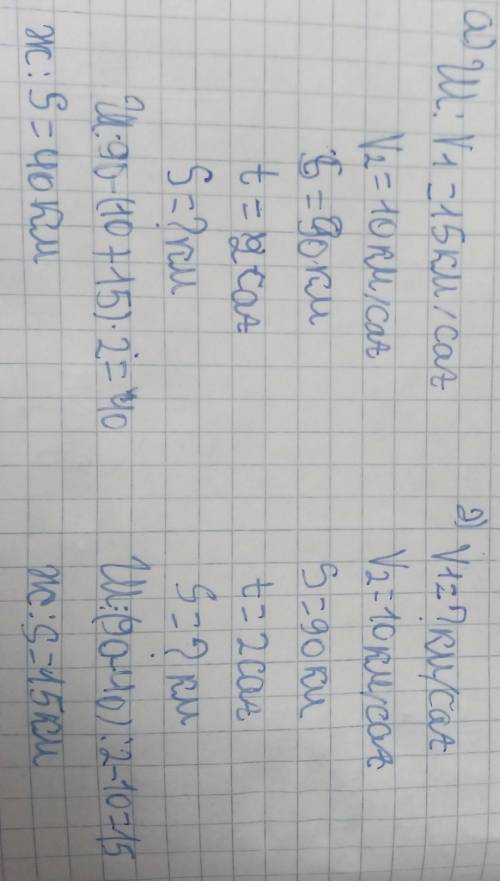 а) Ш: V1=15км/сағ
V2=10км/сағ
S=90км
t=2сағ
S=?км
Ш:90-(10+15)·2=40
Ж:S=40км
2) V1=?км/сағ
V2=10км/сағ
S=90км
t=2сағ
S=?км
Ш:(90-40):2-10=15
Ж:S=15км